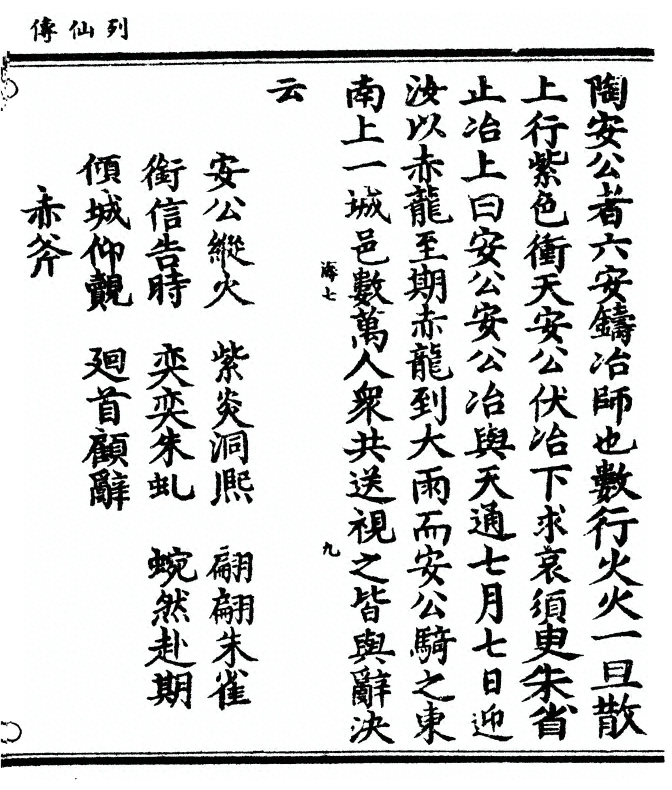 列仙傳
陶安公者六安鑄冶師也數行火火一旦散
上行紫色衝天安公伏冶下求哀須臾朱省
止冶上曰安公安公冶與天通七月七日迎
汝以赤龍至期赤龍到大雨而安公騎之東
南上一城邑數萬人衆共送視之皆與辭決
海七 九
云
安公縱火 紫炎洞熙 翩翩朱雀
銜信告時 奕奕朱虬 蜿然赴期
傾城仰覿 廻首顧辭
赤斧